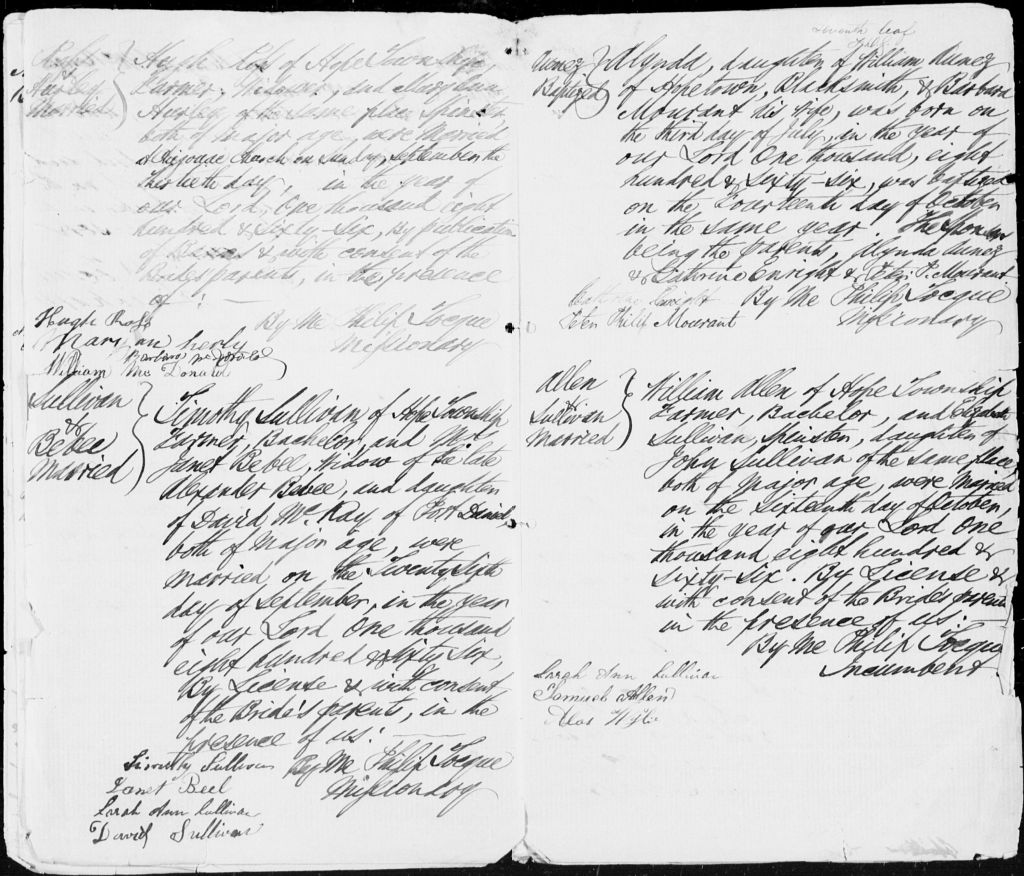 Ross
&
Hurley
Married
Hugh Ross of Hope Township,
Farmer, Widower, and Mary Ann
Hurley of the same place Spinster
both of major age, were married
at Church on Sunday, September the
Thirtieth day, in the year of
our Lord, One thousand eight
hundred & Sixty-Six, By publication
of Banns & with consent of the
Brides parents, in the presence
of :
By Me Philip Tocque
Missionary
Hugh Ross
Mary an herly
Barbra McDonald
William Mc Donald
Sullivan
&
Bebee
Married
Timothy Sullivan of Hope Township
Farmer, Bachelor, and Mrs
Janet Bebee, Widow of the late
Alexander Bebee, and daughter
of David McKay of Port Daniel
both of Major age, were
married on the Twenty Sixth
day of September, in the year
of our Lord One thousand
eight hundred & Sixty Six,
By License & with consent
of the Bride's parents, in the
presence of us :
By Me Philip Tocque
Missionary
Timothy Sullivan
Janet Beel
Sarah Ann Sullivan
David Sullivan
Seventh leaf
Baptized
daughter of William
of Hopetown, Blacksmith, & Barbara
Mourant his wife, was born on
the third day of July, in the year of
our Lord One thousand, eight
hundred & Sixty-six, was baptized
on the Fourteenth day of October
in the same year. The Sponsors
being the parents,
& Catherine Enright & P. Mourant
By Me Philip Tocque
Missionary
Enright
Peter Philip Mourant
Allen
&
Sullivan
Married
William Allen of Hope Township
Farmer, Bachelor, and Elizabeth
Sullivan, Spinster, daughter of
John Sullivan of the same place,
both of Major age, were Married
on the Sixteenth day of October,
in the year of our Lord One
thousand eight hundred &
Sixty-six. By License &
with consent of the Brides parents
in the presence of us :
By Me Philip Tocque
Incumbent
Sarah Ann Sullivan
Samuel Allen